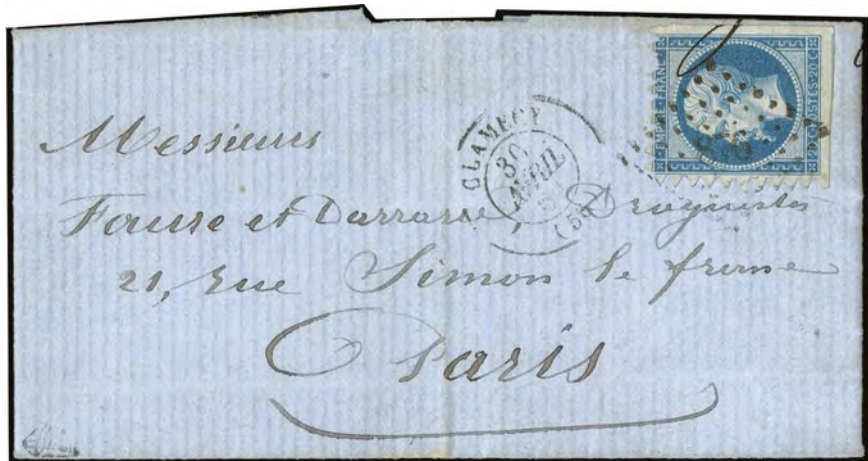 EMPIRE FRANC
POSTES 20 C
CLAMECY
30
AVRIL
Messieurs
et Darrasse, Droguistes
21, rue Simon le franc
Paris